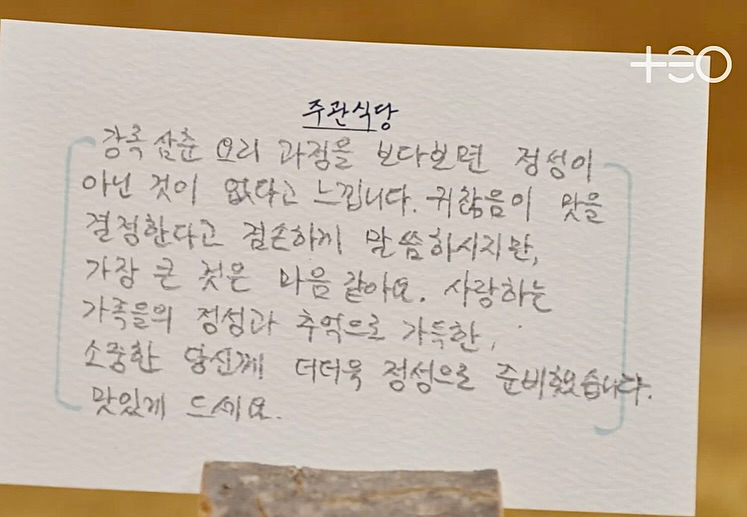 TEO
주관식당
강록삼춘 요리 과정을 보다보면 정성이
아닌 것이 없다고 느낍니다. 귀찮음이 맛을
결정한다고 겸손하게 말씀하시지만,
가장 큰 것은 마음 같아요. 사랑하는
가족들의 정성과 추억으로 가득한,
소중한 당신께 더더욱 정성으로 준비했습니다.
맛있게 드세요.